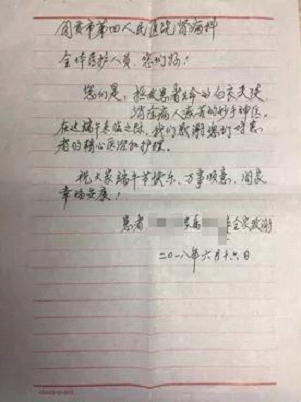 自贡市第四人民医院肾病科
全体医护人员,您们好!
您们是,拯救患者生命的白衣天使,
消除病人痛苦的妙手神医。
在这端午来临之际,我们感谢您们对患
者的精心医治和护理。
祝大家端午节快乐、万事顺意,阖家
幸福安康!
患者
全家致谢
二〇一八年六月十六日